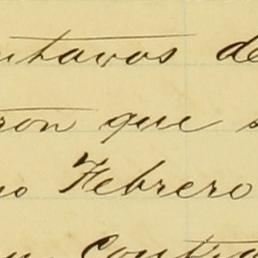 ntavos de
ron que s
no Febrero
Contra